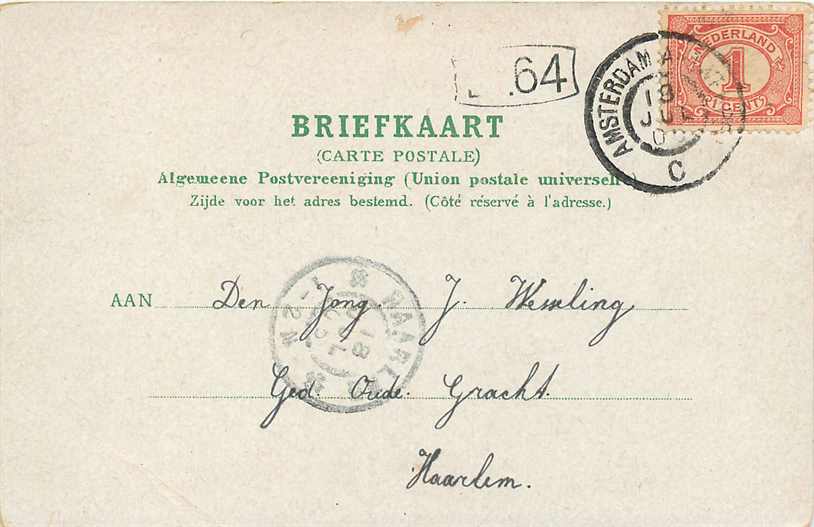 NEDERLAND
1
CENT
.64
AMSTERDAM
18
JUL
C
BRIEFKAART
(CARTE POSTALE)
Algemeene Postvereeniging (Union postale universelle
Zijde voor het adres bestemd. (Côté réservé à l'adresse.)
AAN Den Jong. J. Wesseling
Ged. Oude. Gracht.
Haarlem.
HAARL
18
1-2N